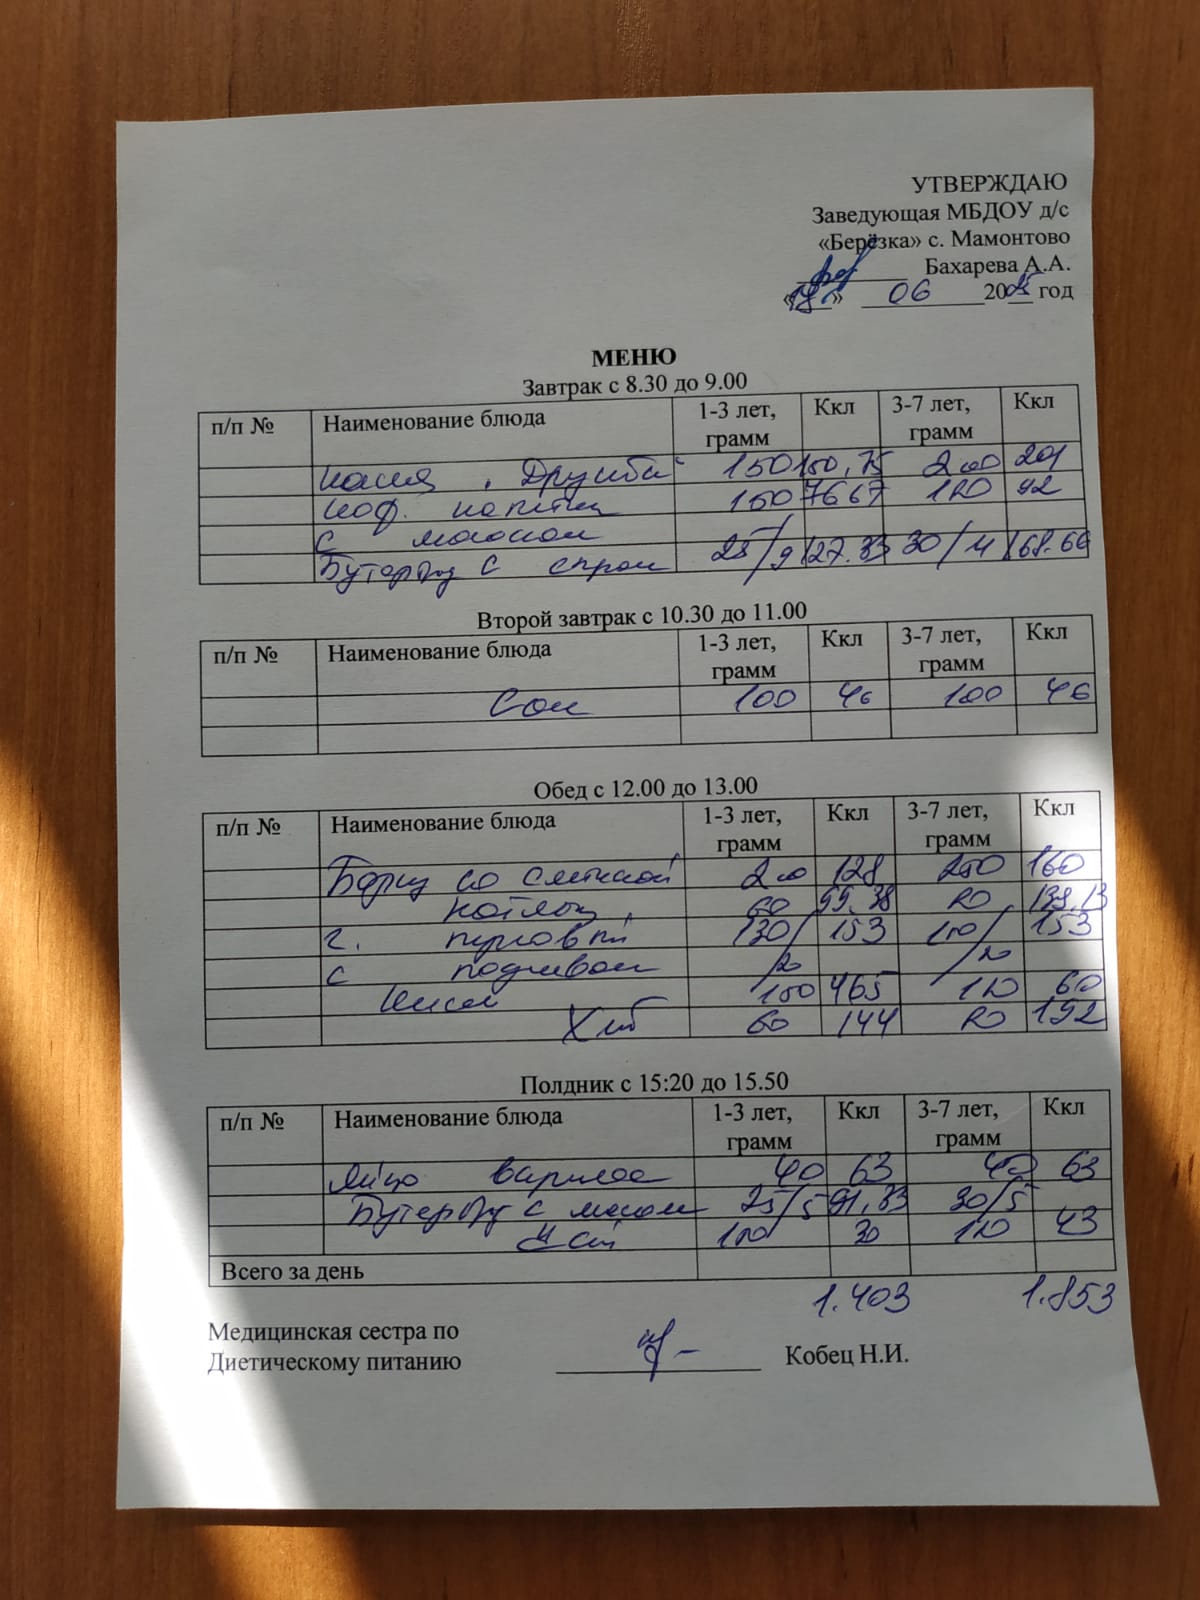 УТВЕРЖДАЮ
Заведующая МБДОУ д/с
«Берёзка» с. Мамонтово
Бахарева А.А.
« » 06 20 год
МЕНЮ
Завтрак с 8.30 до 9.00
п/п № Наименование блюда 1-3 лет, грамм Ккл 3-7 лет, грамм Ккл
каша "Дружба" 150 150,75 200 201
коф. напиток 150 7667 180 92
с молоком
Бутерброд с сыром 25/9 127.33 30/11 168.66
Второй завтрак с 10.30 до 11.00
п/п № Наименование блюда 1-3 лет, грамм Ккл 3-7 лет, грамм Ккл
Сок 100 46 100 46
Обед с 12.00 до 13.00
п/п № Наименование блюда 1-3 лет, грамм Ккл 3-7 лет, грамм Ккл
Борщ со сметаной 200 128 250 160
котлет 60 99.38 80
г. перловый 130/ 153 / 153
с подливом /20 /20
Кисель 150 465 180 60
Хлеб 60 144 80 192
Полдник с 15:20 до 15.50
п/п № Наименование блюда 1-3 лет, грамм Ккл 3-7 лет, грамм Ккл
Яйцо вареное 40 63 40 63
Бутерброд с маслом 25/5 91,33 30/5
Чай 30 180 43
Всего за день
1.403 1.853
Медицинская сестра по
Диетическому питанию Кобец Н.И.